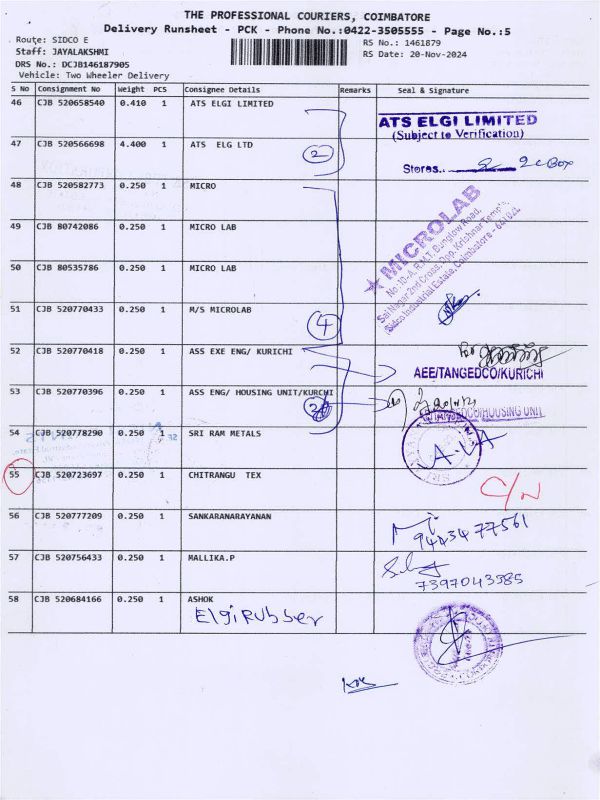 THE PROFESSIONAL COURIERS, COIMBATORE
Delivery Runsheet - PCK - Phone No.:0422-3505555 - Page No.:5
Route: SIDCO E
Staff: JAYALAKSHMI
DRS No.: DCJB146187905
Vehicle: Two Wheeler Delivery
RS No.: 1461879
RS Date: 20-Nov-2024
S No Consignment No Weight PCS Consignee Details Remarks Seal & Signature
46 CJB 520658540 0.410 1 ATS ELGI LIMITED
ATS ELGI LIMITED
(Subject to Verification)
47 CJB 520566698 4.400 1 ATS ELG LTD
2
Stores.
2 Box
48 CJB 520582773 0.250 1 MICRO
MICROLAB
No:10-A, R.M.T. Bunglow Road,
Sai Nagar 2nd Cross, Opp. Krishnar Temple,
(Sidco Industrial Estate, Coimbatore - 641021.
49 CJB 80742086 0.250 1 MICRO LAB
50 CJB 80535786 0.250 1 MICRO LAB
51 CJB 520770433 0.250 1 M/S MICROLAB
4
52 CJB 520770418 0.250 1 ASS EXE ENG/ KURICHI
AEE/TANGEDCO/KURICHI
53 CJB 520770396 0.250 1 ASS ENG/ HOUSING UNIT/KURCHI
HOUSING UNIT
54 CJB 520778290 0.250 1 SRI RAM METALS
55 CJB 520723697 0.250 1 CHITRANGU TEX
C/N
56 CJB 520777209 0.250 1 SANKARANARAYANAN
9443477561
57 CJB 520756433 0.250 1 MALLIKA.P
7397043385
58 CJB 520684166 0.250 1 ASHOK
Elgi Rubber